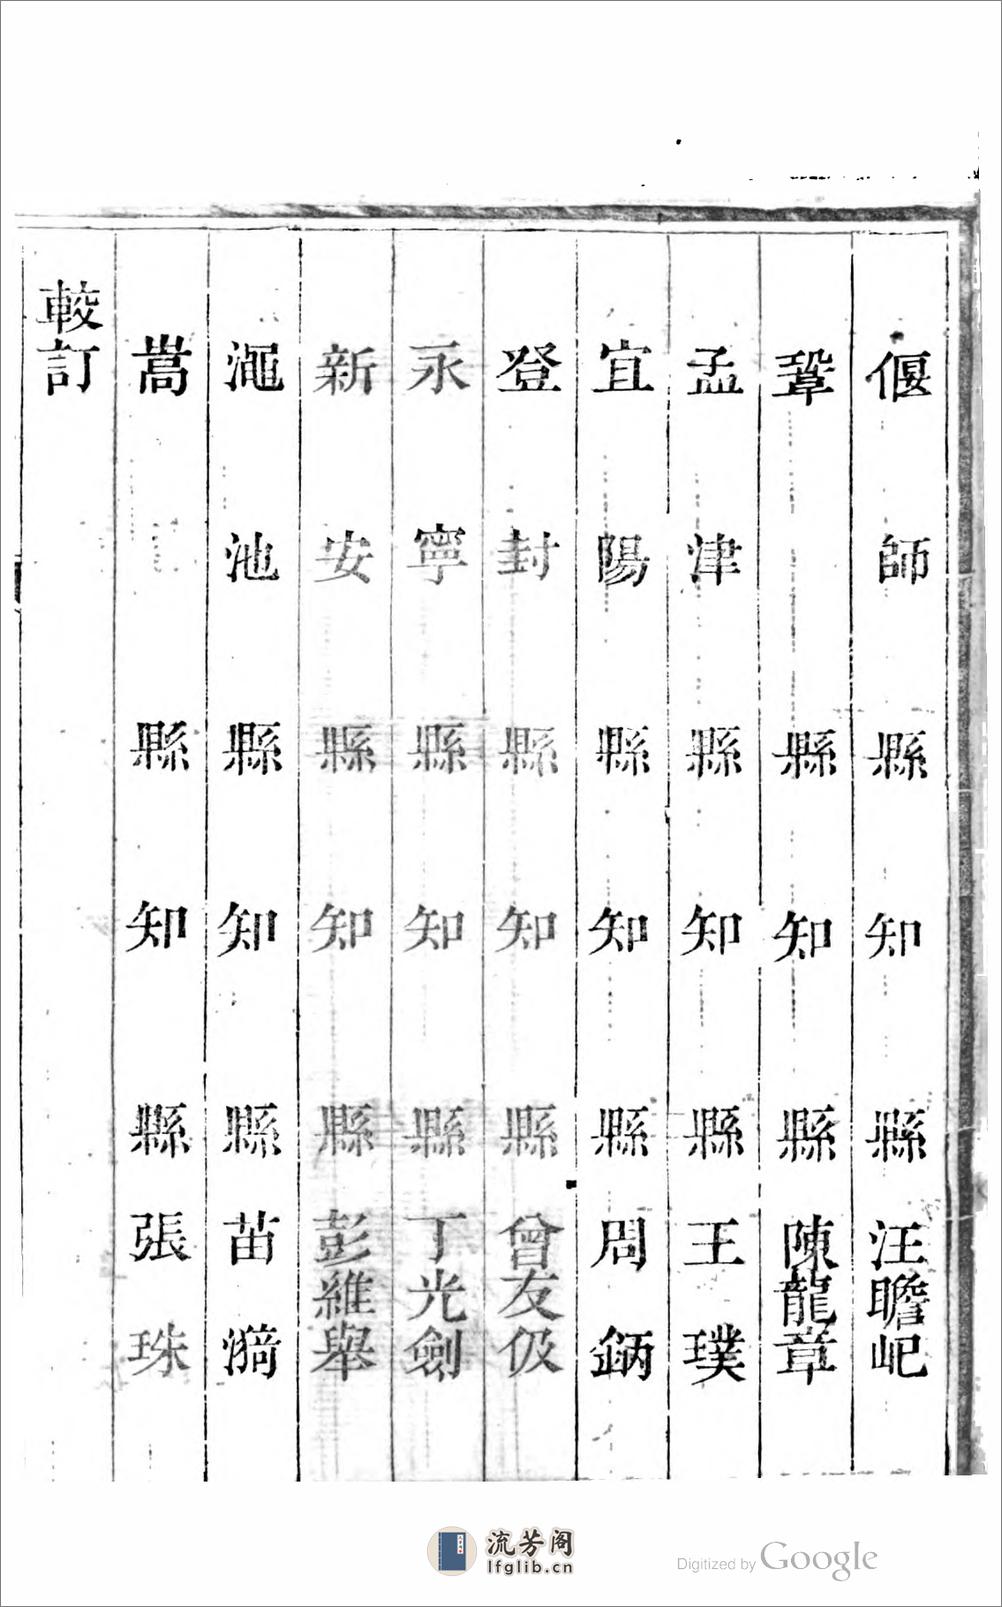 偃師縣知縣汪瞻屺
鞏縣知縣陳龍章
孟津縣知縣王璞
宜陽縣知縣周鈵
登封縣知縣曾友伋
永寧縣知縣丁光劍
新安縣知縣彭維舉
澠池縣知縣苗漪
嵩縣知縣張珠
較訂
流芳阁
lfglib.cn
Digitized by Google